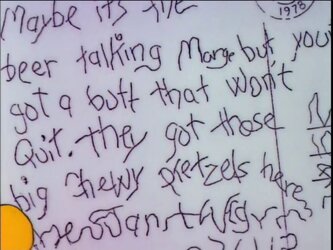 Maybe it's the
1978
beer talking Marge but you
got a butt that won't
Quit. they got those
big chewy pretzels here